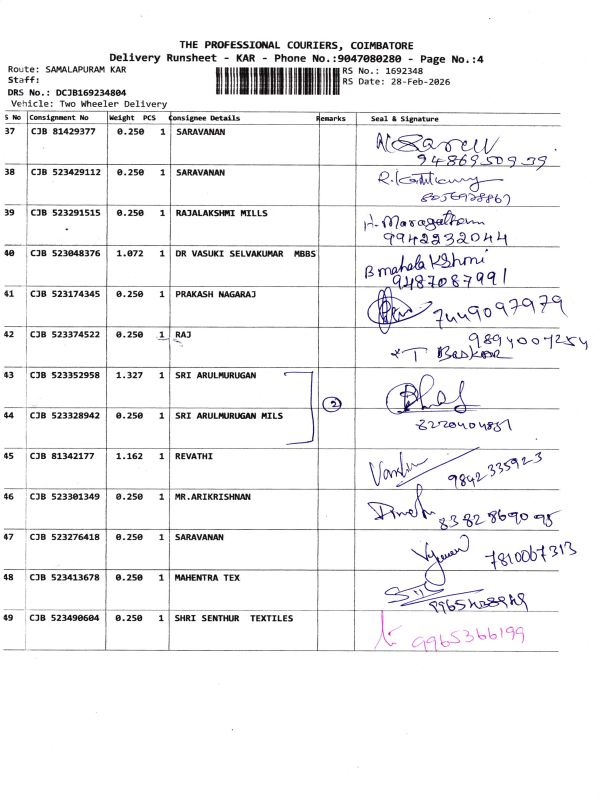 THE PROFESSIONAL COURIERS, COIMBATORE
Delivery Runsheet - KAR - Phone No.:9047080280 - Page No.:4
Route: SAMALAPURAM KAR
RS No.: 1692348
Staff:
RS Date: 28-Feb-2026
DRS No: DCJB169234804
Vehicle: Two Wheeler Delivery
S No Consignment No Weight PCS Consignee Details Remarks Seal & Signature
37 CJB 81429377 0.250 1 SARAVANAN
9486950939
38 CJB 523429112 0.250 1 SARAVANAN
39 CJB 523291515 0.250 1 RAJALAKSHMI MILLS H. Maragatham
9942232044
40 CJB 523048376 1.072 1 DR VASUKI SELVAKUMAR MBBS B mahalakshmi
9487087991
41 CJB 523174345 0.250 1 PRAKASH NAGARAJ 7449097979
42 CJB 523374522 0.250 1 RAJ 9894007254
T Baskar
43 CJB 523352958 1.327 1 SRI ARULMURUGAN
2
44 CJB 523328942 0.250 1 SRI ARULMURUGAN MILS
45 CJB 81342177 1.162 1 REVATHI 9842335923
46 CJB 523301349 0.250 1 MR.ARIKRISHNAN 8382869095
47 CJB 523276418 0.250 1 SARAVANAN 7810067313
48 CJB 523413678 0.250 1 MAHENTRA TEX
49 CJB 523490604 0.250 1 SHRI SENTHUR TEXTILES 9965366199